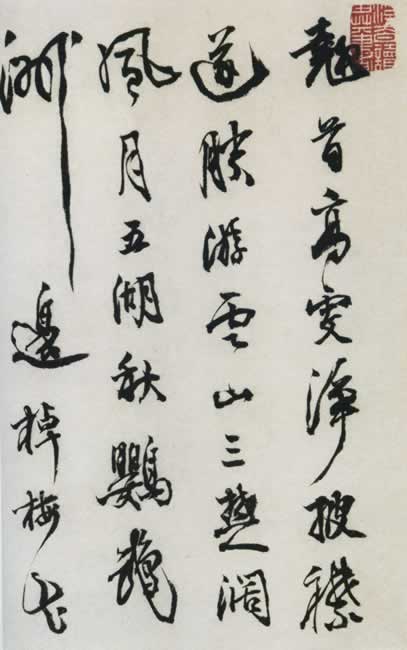 翹首高雯淨披襟
遂勝游雲山三楚濶
風月五湖秋鸚鵡
洲邊棹梅花